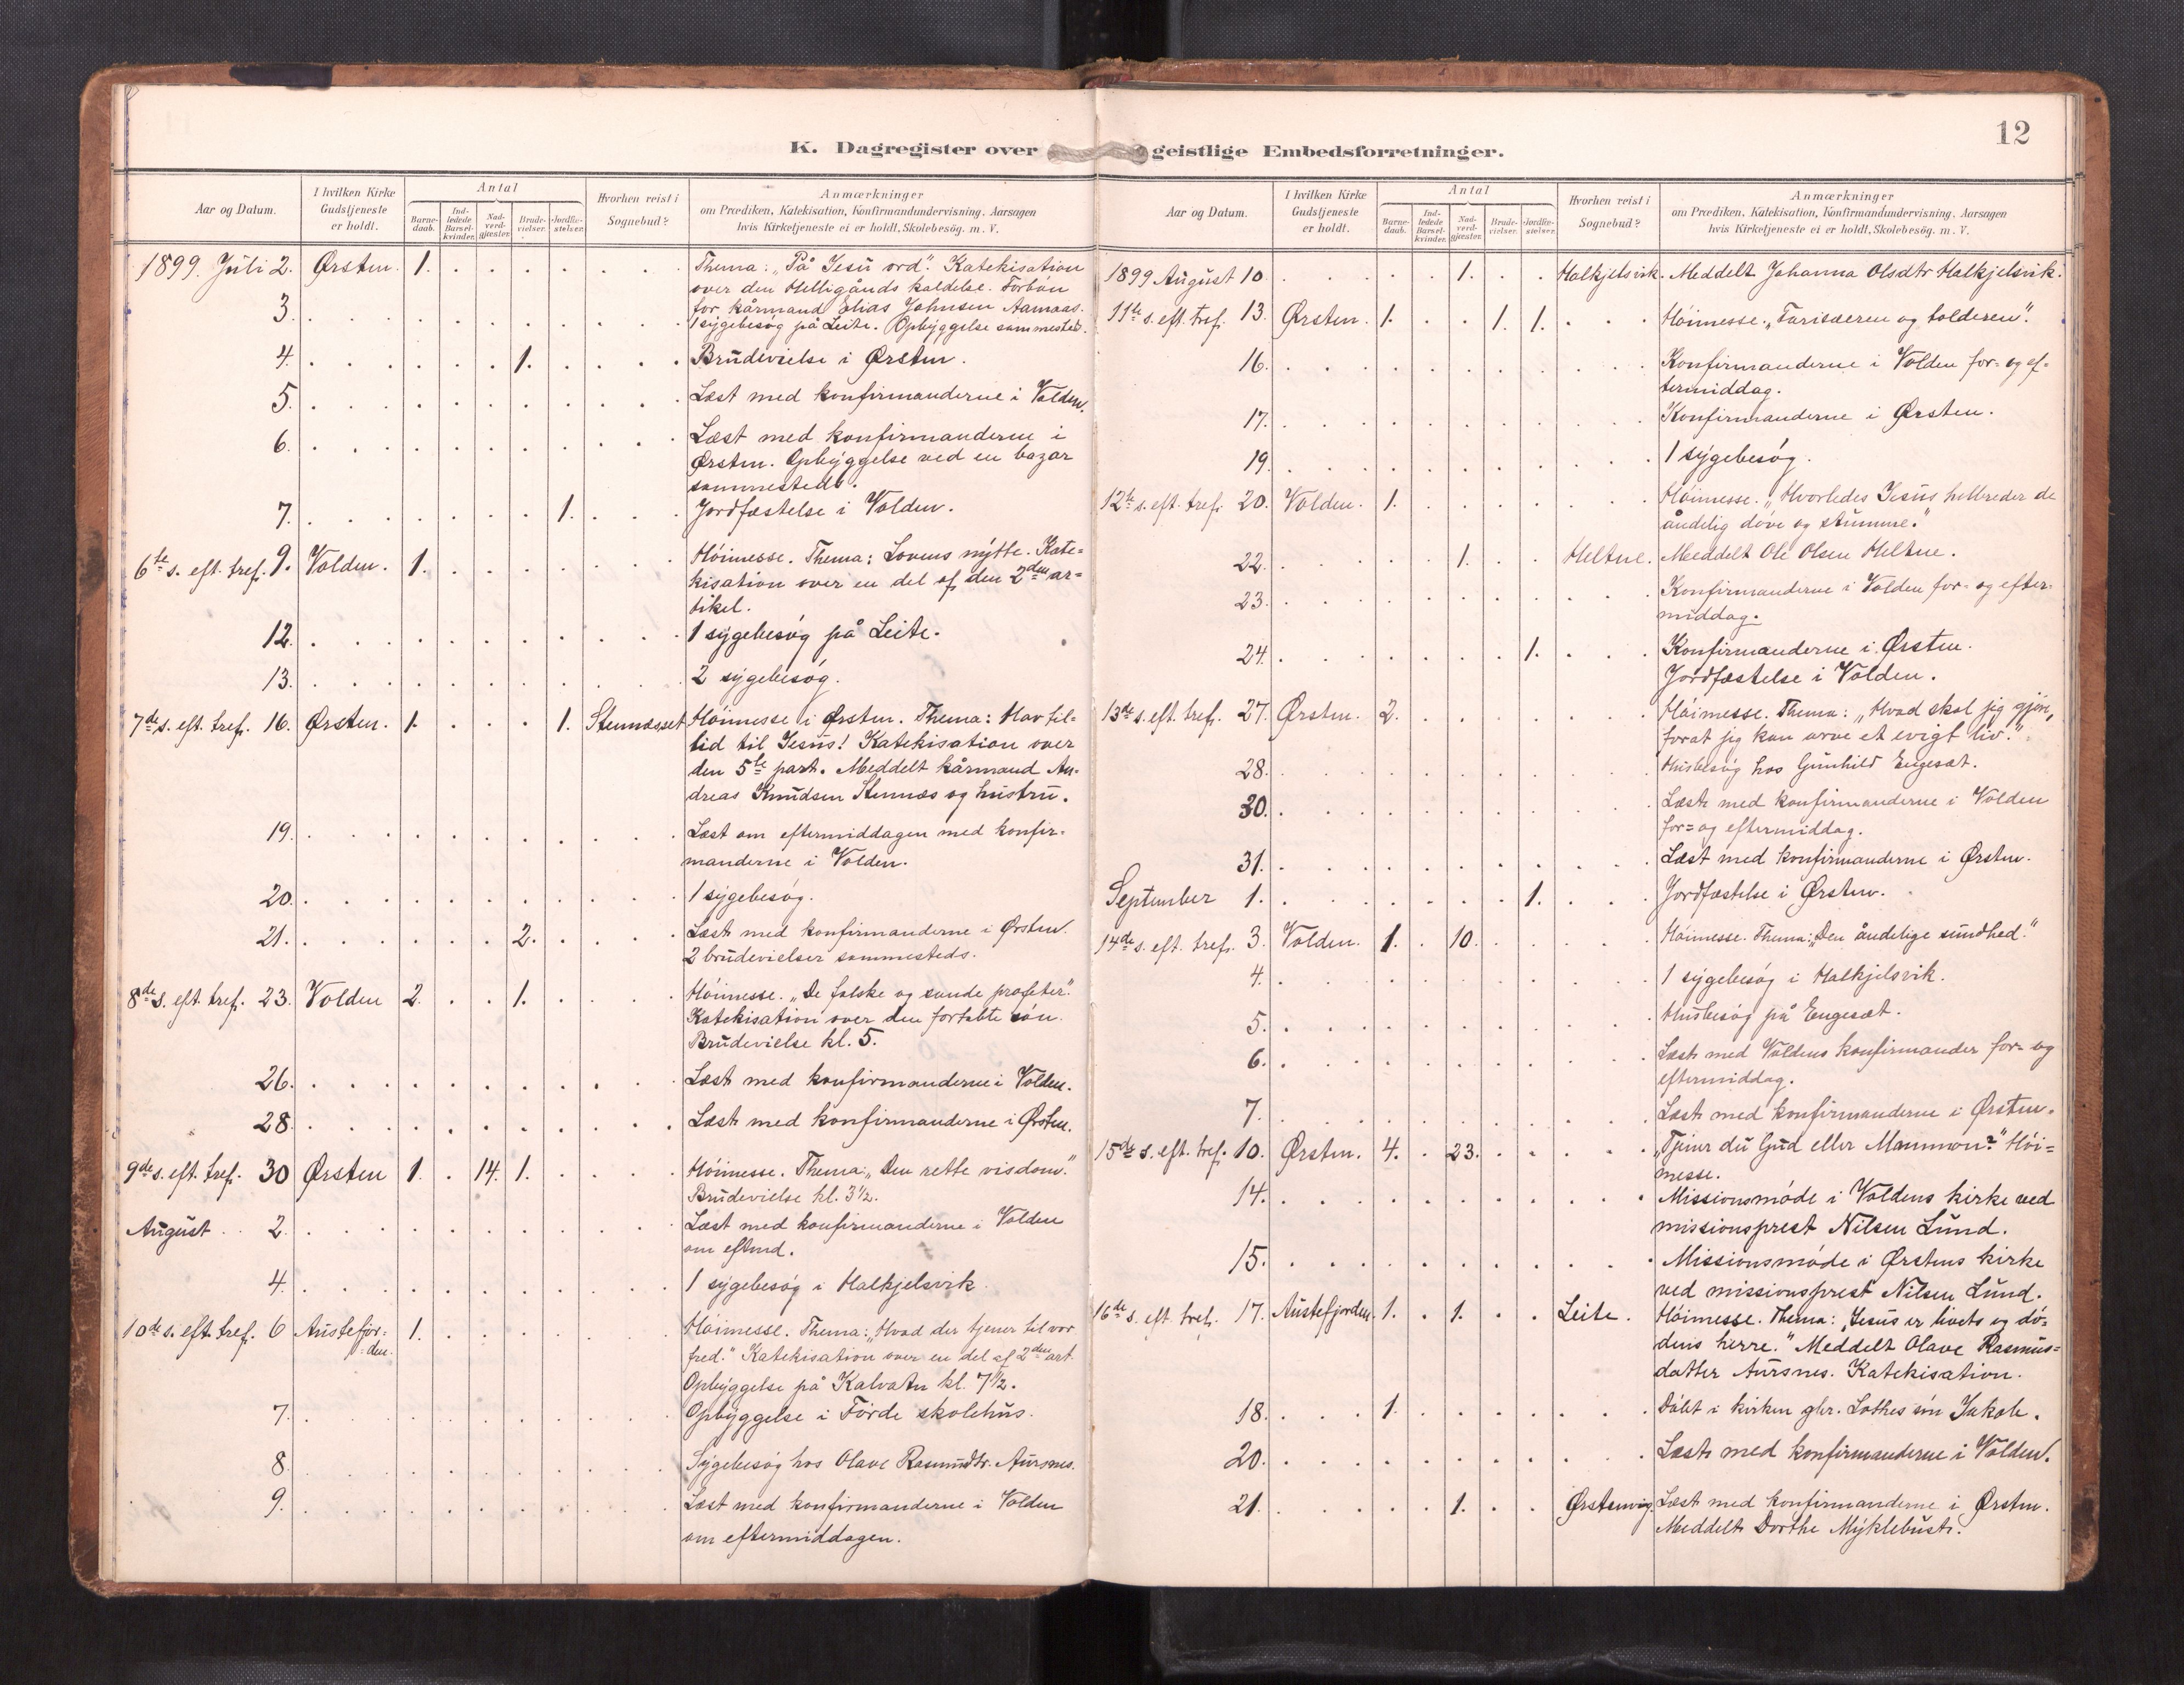 12
K. Dagregister over geistlige Embedsforretninger.
Aar og Datum.
I hvilken Kirke
Gudstjeneste
er holdt.
Antal
Barne-
daab.
Ind-
ledede
Barsel-
kvinder.
Nad-
verd-
gjæster.
Brude-
vielser.
Jordfæ-
stelser.
Hvorhen reist i
Sognebud?
Anmærkninger
om Prædiken, Katekisation, Konfirmandundervisning, Aarsagen
hvis Kirketjeneste ei er holdt, Skolebesög. m. V.
1899. Juli 2. Ørsten. 1. Thema: „På Jesu ord." Katekisation
over den Helligånds kaldelse. Forbøn
for kårmand Elias Johnsen Aamaas.
3. 1 sygebesøg på Leite. Opbyggelse sammesteds.
4. 1. Brudevielse i Ørsten.
5. Læst med konfirmanderne i Volden.
6. Læst med konfirmanderne i
Ørsten. Opbyggelse ved en bazar
sammesteds.
7. 1. Jordfæstelse i Volden.
6te s. eft. tref. 9. Volden. 1. Höimesse. Thema: Lovens nytte. Kate=
kisation over en del af den 2den ar=
tikel.
12. 1 sygebesøg på Leite.
13. 2 sygebesøg.
7de s. eft. tref. 16. Ørsten. 1. 1. Stennæsset Höimesse i Ørsten. Thema: Hav til=
lid til Jesus! Katekisation over
den 5te part. Meddelt kårmand An=
dreas Knudsen Stennæs og hustru.
19. Læst om eftermiddagen med konfir=
manderne i Volden.
20. 1 sygebesøg.
21. 2. Læst med konfirmanderne i Ørsten.
2 brudevielser sammesteds.
8de s. eft. tref. 23. Volden 2. 1. Höimesse. „De falske og sande profeter."
Katekisation over den fortabte søn.
Brudevielse kl. 5.
26. Læst med konfirmanderne i Volden.
28. Læst med konfirmanderne i Ørsten.
9de s. eft. tref. 30 Ørsten 1. 14. 1. Höimesse. Thema: „Den rette visdom."
Brudevielse kl. 3 1/2.
August 2. Læst med konfirmanderne i Volden
om eftmd.
4. 1 sygebesøg i Halkjelsvik.
10de s. eft. tref. 6 Austefjor=
=den. 1. Höimesse. Thema: „Hvad der tjener til vor
fred." Katekisation over en del af 2den art.
Opbyggelse på Kalvatn kl. 7 1/2.
7. Opbyggelse i Förde skolehus.
8. Sygebesøg hos Olave Rasmusdtr. Aursnes.
9. Læst med konfirmanderne i Volden
om eftermiddagen.
Aar og Datum.
I hvilken Kirke
Gudstjeneste
er holdt.
Antal
Barne-
daab.
Ind-
ledede
Barsel-
kvinder.
Nad-
verd-
gjæster.
Brude-
vielser.
Jordfæ-
stelser.
Hvorhen reist i
Sognebud?
Anmærkninger
om Prædiken, Katekisation, Konfirmandundervisning, Aarsagen
hvis Kirketjeneste ei er holdt, Skolebesög. m. V.
1899 August 10. 1. Halkjelsvik. Meddelt Johanna Olsdtr Halkjelsvik.
11te s. eft. tref. 13. Ørsten. 1. 1. 1. Höimesse. „Farisæeren og tolderen".
16. Konfirmanderne i Volden for- og ef=
termiddag.
17. Konfirmanderne i Ørsten.
19. 1 sygebesøg.
12te s. eft. tref. 20. Volden. 1. Höimesse. „Hvorledes Jesus helbreder de
åndelig døve og stumme."
22. 1. Heltne. Meddelt Ole Olsen Heltne.
23. Konfirmanderne i Volden for- og efter-
middag.
24. 1. Konfirmanderne i Ørsten.
Jordfæstelse i Volden.
13de s. eft. tref. 27. Ørsten. 2. Höimesse. Thema: „Hvad skal jeg gjøre,
forat jeg kan arve et evigt liv."
28. Husbesøg hos Gunhild Engeset.
30. Læst med konfirmanderne i Volden
for= og eftermiddag.
31. Læst med konfirmanderne i Ørsten.
September 1. 1. Jordfæstelse i Ørsten.
14de s. eft. tref. 3. Volden. 1. 10. Höimesse. Thema: „Den åndelige sundhed."
4. 1 sygebesøg i Halkjelsvik.
5. Husbesøg på Engeset.
6. Læst med Voldens konfirmander for- og
eftermiddag.
7. Læst med konfirmanderne i Ørsten.
15de s. eft. tref. 10. Ørsten. 4. 23. „Tjener du Gud eller Mammon?" Höi=
messe.
14. Missionsmøde i Voldens kirke ved
missionsprest Nilsen Lund.
15. Missionsmøde i Ørstens kirke
ved missionsprest Nilsen Lund.
16de s. eft. tref. 17. Austefjorden. 1. 1. Leite. Höimesse. Thema: „Jesus er livets og dø=
dens herre." Meddelt Olave Rasmus=
datter Aursnes. Katekisation.
18. 1. Døbt i kirken Lothes søn Jakob.
20. Læst med konfirmanderne i Volden.
21. 1. Ørstenvig Læst med konfirmanderne i Ørsten.
Meddelt Dorthe Myklebust.